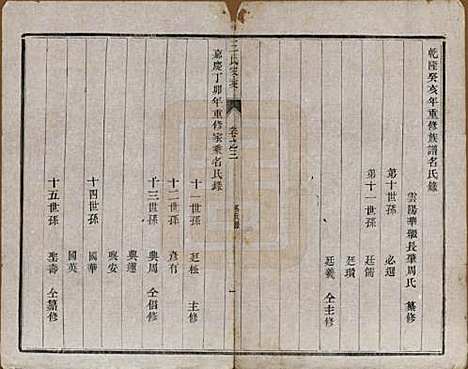 乾隆癸亥年重修族譜名氏錄
雲陽華獵長肇周氏 纂修
第十世孫 必選
第十一世孫 廷儒
廷瓚
廷羲 仝主修
王氏家乘
卷之二
名氏錄
一
嘉慶丁卯年重修家乘名氏錄
十一世孫 廷極 主修
十二世孫 彥有
十三世孫 興周 仝倡修
興蓮
興安
十四世孫 國華
國英
十五世孫 聖壽 仝纂修